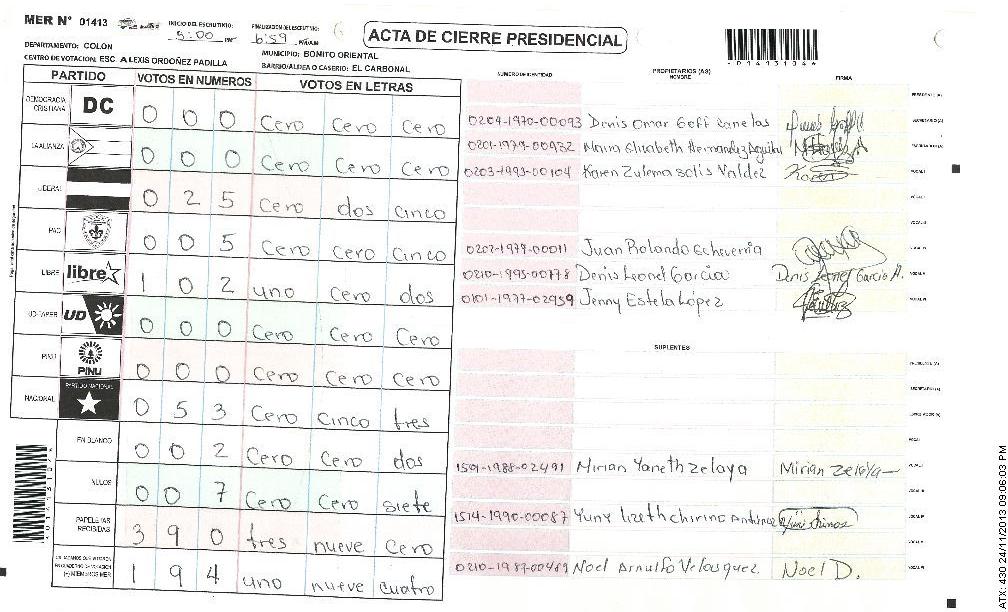 MER N° 01413 INICIO DEL ESCRUTINIO: 5:00 PM FINALIZACION DEL ESCRUTINIO: 6:59 PM/AM
ACTA DE CIERRE PRESIDENCIAL
DEPARTAMENTO: COLÓN MUNICIPIO: BONITO ORIENTAL
CENTRO DE VOTACION: ESC. ALEXIS ORDOÑEZ PADILLA BARRIO/ALDEA O CASERIO: EL CARBONAL
PARTIDO VOTOS EN NUMEROS VOTOS EN LETRAS
DEMOCRACIA CRISTIANA DC 0 0 0 Cero Cero Cero
LA ALIANZA 0 0 0 Cero Cero Cero
LIBERAL 0 2 5 Cero dos cinco
PAC 0 0 5 Cero Cero Cinco
LIBRE libre 1 0 2 uno Cero dos
UD-FAPER UD 0 0 0 Cero Cero Cero
PINU PINU 0 0 0 Cero Cero Cero
NACIONAL PARTIDO NACIONAL 0 5 3 Cero Cinco tres
EN BLANCO 0 0 2 Cero Cero dos
NULOS 0 0 7 Cero Cero siete
PAPELETAS RECIBIDAS 3 9 0 tres nueve Cero
CIUDADANOS QUE VOTARON EN CUADERNO DE VOTACION (+) MIEMBROS MER 1 9 4 uno nueve cuatro
NUMERO DE IDENTIDAD PROPIETARIOS (AS) NOMBRE FIRMA
PRESIDENTE (A)
0204-1970-00093 Denis Omar Goff Canelas SECRETARIO (A)
0201-1979-00932 Maira Elizabeth Hernandez Aguilar ESCRUTADOR (A)
0203-1993-00104 Karen Zulema Solis Valdez VOCAL I
VOCAL II
VOCAL III
0202-1979-00011 Juan Rolando Echeverria VOCAL IV
0210-1995-00778 Denis Leonel Garcia Denis Leonel Garcia A. VOCAL V
0101-1977-02959 Jenny Estela López VOCAL VI
SUPLENTES
PRESIDENTE (A)
SECRETARIO (A)
ESCRUTADOR (A)
VOCAL I
1501-1988-02491 Mirian Yaneth Zelaya Mirian Zelaya VOCAL II
VOCAL III
1514-1990-00087 Yuny Lizeth Chirino Antúnez VOCAL IV
VOCAL V
0210-1987-00469 Noel Arnulfo Velasquez Noel D. VOCAL VI
ATX: 430 24/11/2013 09:06:03 PM